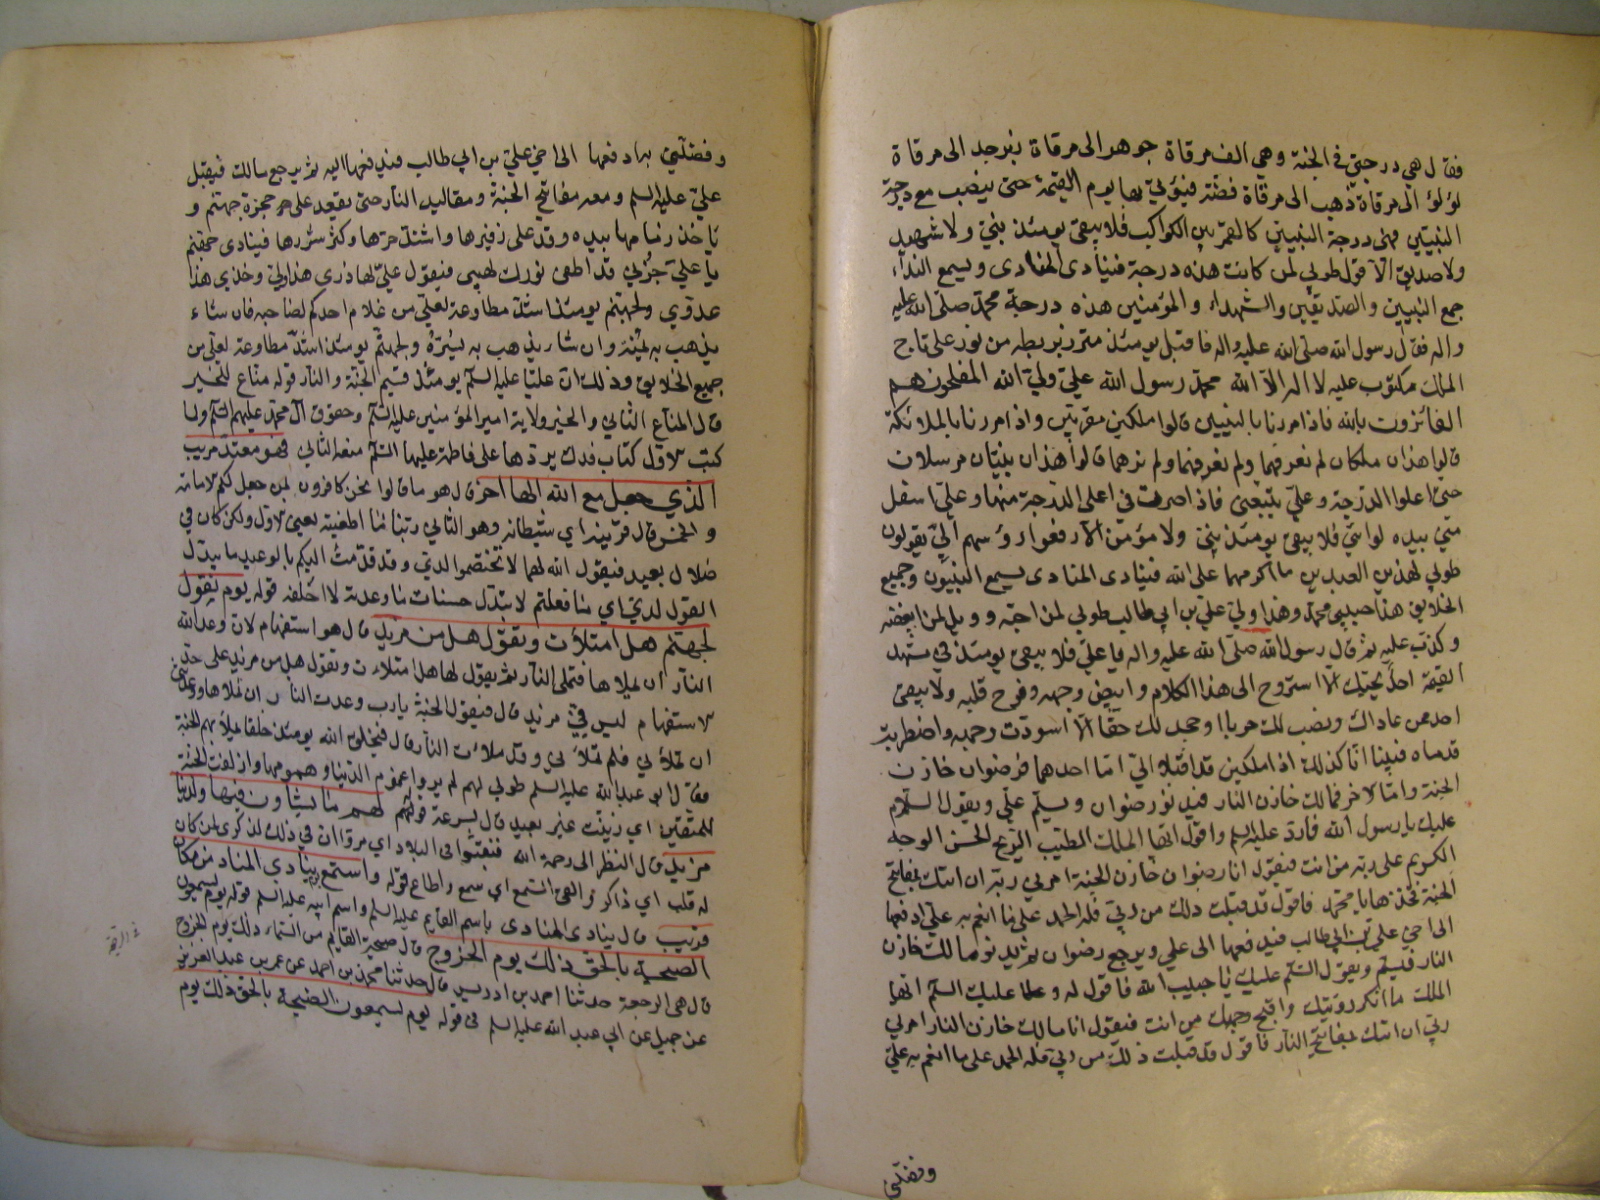 فقال هي درجتي في الجنة وهي الف مرقاة جوهر الى مرقاة زبرجد الى مرقاة
لؤلؤ الى مرقاة ذهب الى مرقاة فضة فيؤتى بها يوم القيمة حتى ينصب مع درجة
النبيين فهى درجة النبيين كالقمر بين الكواكب فلا يبقى يومئذ نبي ولا شهيد
ولا صديق الا قال طوبى لمن كانت هذه درجة فينادى المنادى ويسمع النداء
جمع النبيين والصديقين والشهداء والمؤمنين هذه درجة محمد صلى الله عليه
واله فقال رسول الله صلى الله عليه واله فاقبل يومئذ متزر بريطه من نور على تاج
الملك مكتوب عليه لا اله الا الله محمد رسول الله علي ولي الله المفلحون هم
الفائزون بالله فاذا مررنا بالنبيين قالوا ملكين مقربين واذا مررنا بالملائكة
قالوا هذان ملكان لم نعرفهما ولم نرهما قالوا هذان نبيان مرسلان
حتى اعلوا الدرجة وعلي يتبعنى فاذا صرت في اعلى الدرجة منها وعلي اسفل
مني بيده لوائي فلا يبقى يومئذ نبي ولا مؤمن الا رفعوا رؤسهم الي يقولون
طوبى لهذين العبدين ما اكرمهما على الله فينادى المنادى يسمع النبيون وجميع
الخلايق هذا حبيبى محمد وهذا وليي علي بن ابي طالب طوبى لمن احبه وويل لمن ابغضه
وكذب عليه ثم قال رسول الله صلى الله عليه واله يا علي فلا يبقى يومئذ في مشهد
القيمة احد يحبك الا استروح الى هذا الكلام وابيض وجهه وفرح قلبه ولا يبقى
احد ممن عاداك ونصب لك حربا او جحد لك حقا الا اسودت وجهه واضطربت
قدماه فبينا انا كذلك اذا ملكين قد اقبلا الي اما احدهما فرضوان خازن
الجنة واما الاخر فمالك خازن النار فيدنو رضوان ويسلم علي ويقول السلام
عليك يا رسول الله فارد عليه السلم واقول ايها الملك المطيب الريح الحسن الوجه
الكريم على ربه من انت فيقول انا رضوان خازن الجنة امرني ربي ان اتيك بمفاتيح
الجنة فخذها يا محمد فاقول قد قبلت ذلك من ربي فله الحمد على ما انعم به علي ادفعها
الى اخي علي بن ابي طالب فيدفعها الى علي ويرجع رضوان ثم يدنو مالك خازن
النار فيسلم ويقول السلم عليك يا حبيب الله فاقول له وعليك السلم ايها
الملك ما انكر رؤيتك واقبح وجهك من انت فيقول انا مالك خازن النار امرني
ربي ان اتيك بمفاتيح النار فاقول قد قبلت ذلك من ربي فله الحمد على ما انعم به علي
وفضلني
وفضلني به ادفعها الى اخي علي بن ابي طالب فيدفعها اليه ثم يرجع مالك فيقبل
علي عليه السلم ومعه مفاتيح الجنة ومقاليد النار حتى يقعد على حجزة جهنم و
ياخذ زمامها بيده وقد علا زفيرها واشتد حرها وكثر شررها فينادى جهنم
يا علي جزني قد اطفى نورك لهبى فيقول علي لها ذرى هذا وليي وخذي هذا
عدوي ولجهنم يومئذ اشد مطاوعة لعلي من غلام احدكم لصاحبه فان شاء
يذهب به يمنة وان شاء يذهب به يسرة ولجهنم يومئذ اشد مطاوعة لعلي من
جميع الخلايق وذلك ان عليا عليه السلم يومئذ قسيم الجنة والنار قوله مناع للخير
قال المناع الثاني والخير ولاية امير المؤمنين عليه السلم وحقوق آل محمد عليهم السلم ولما
كتب الاول كتاب فدك يردها على فاطمة عليها السلم منعه الثاني فهو معتد مريب
الذي جعل مع الله الها اخر قال هو ما قالوا نحن كافرون بمن جعل لكم الامامة
والخمس قال قرينه اي شيطانه وهو الثاني ربنا ما اطغيته يعني الاول ولكن كان في
ضلال بعيد فيقول الله لهما لا تختصموا لدي وقد قدمت اليكم بالوعيد ما يبدل
القول لدي اي ما فعلتم لا يبدل حسنات ما وعدته لا اخلفه قوله يوم يقول
لجهنم هل امتلأت وتقول هل من مزيد قال هو استفهام لان وعد الله
النار ان يملاها فتملى النار ثم يقول لها هل امتلاءت وتقول هل من مزيد على حد
الاستفهام ليس في مزيد قال فيقول الجنة يا رب وعدت النار ان تملاها ووعدتني
ان تملأني فلم تملأني وقد ملائت النار قال فيخلق الله يومئذ خلقا يملأ بهم الجنة
فقال ابو عبد الله عليه السلم طوبى لهم لم يروا غموم الدنيا وهمومها وازلفت الجنة
للمتقين اي زينت غير بعيد قال بسرعة قوله لهم ما يشاؤن فيها ولدينا
مزيد قال النظر الى رحمة الله فنقبوا في البلاد اي مروا ان في ذلك لذكرى لمن كان
له قلب اي ذاكر او القى السمع اي سمع واطاع قوله واستمع يوم ينادي المناد من مكان
قريب قال ينادى المنادى باسم القايم عليه السلم واسم ابيه عليه السلم قوله يوم يسمعون
الصيحة بالحق ذلك يوم الخروج قال صيحة القايم من السماء ذلك يوم الخروج
قال هى الرجعة حدثنا احمد بن ادريس قال حدثنا محمد بن احمد عن عمر بن عبد العزيز
عن جميل عن ابي عبد الله عليه السلم في قوله يوم يسمعون الصيحة بالحق ذلك يوم